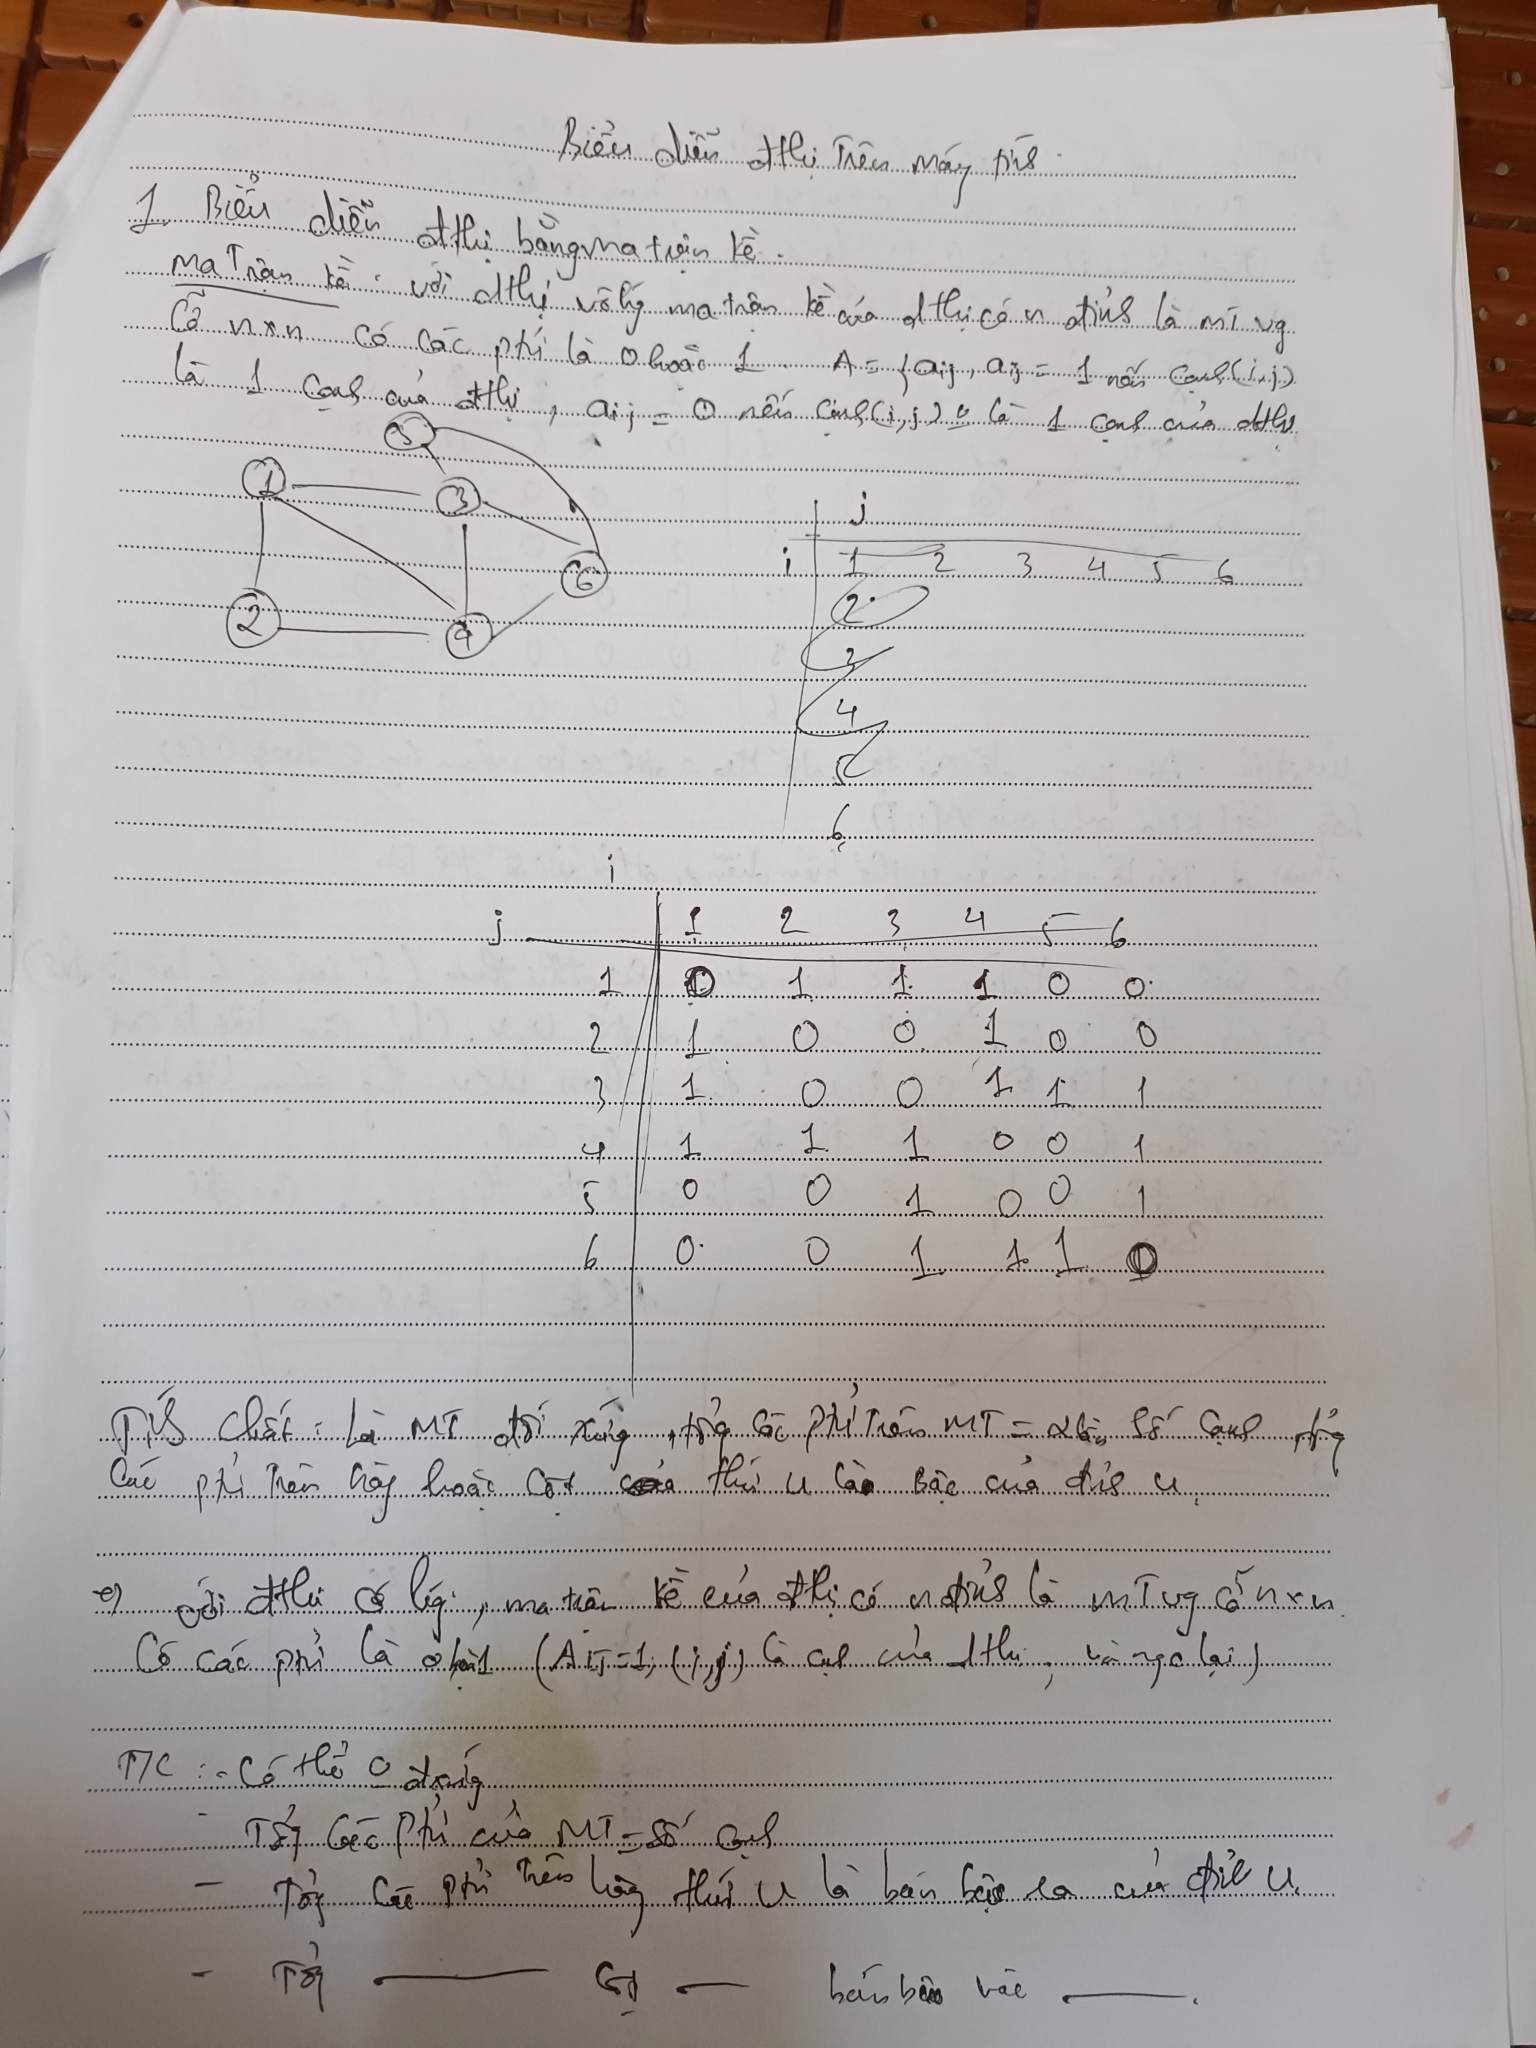 Biểu diễn đthị trên máy tính
1. Biểu diễn đthị bằng ma trận kề.
Ma trận kề: với đthị vô hg ma trận kề của đthị có n đỉnh là MT vg
Cỡ n×n có các ptử là 0 hoặc 1. A = {aij, aij = 1 nếu cạnh(i,j)
là 1 cạnh của đthị, aij = 0 nếu cạnh(i,j) o là 1 cạnh của đthị
5
1 3
6
2 4
j
i 1 2 3 4 5 6
2
3
4
5
6
i
j 1 2 3 4 5 6
1 0 1 1 1 0 0
2 1 0 0 1 0 0
3 1 0 0 1 1 1
4 1 1 1 0 0 1
5 0 0 1 0 0 1
6 0 0 1 1 1 0
Tính chất: Là MT đối xứng, tổng các ptử trên MT = 2 lần số cạnh, tổng
các ptử trên hàng hoặc cột của thứ u là bậc của đỉnh u.
với đthị có hg, ma trận kề của đthị có n đỉnh là MT vg cỡ n×n
Có các ptử là 0 hoặc 1 (Aij=1, (i,j) là cạnh của đthị, và ngc lại)
T/C: - Có thể o đxứng
- Tổng các ptử của MT = số cạnh
- Tổng các ptử trên hàng thứ u là bán bậc ra của đỉnh u.
- Tổng —— cột — bán bậc vào ——.